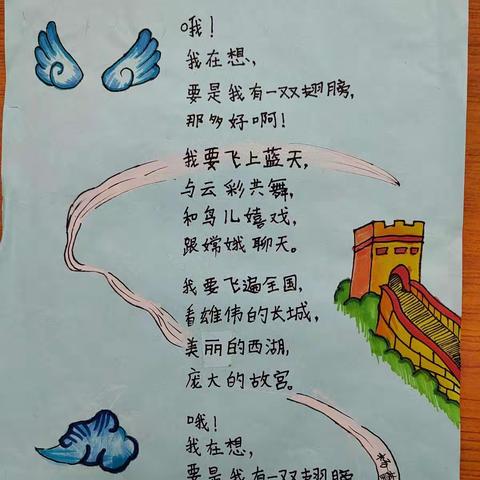 哦！
我在想，
要是我有一双翅膀，
那多好啊！
我要飞上蓝天，
与云彩共舞，
和鸟儿嬉戏，
跟嫦娥聊天。
我要飞遍全国，
看雄伟的长城，
美丽的西湖，
庞大的故宫。
哦！
我在想，
要是我有一双翅膀